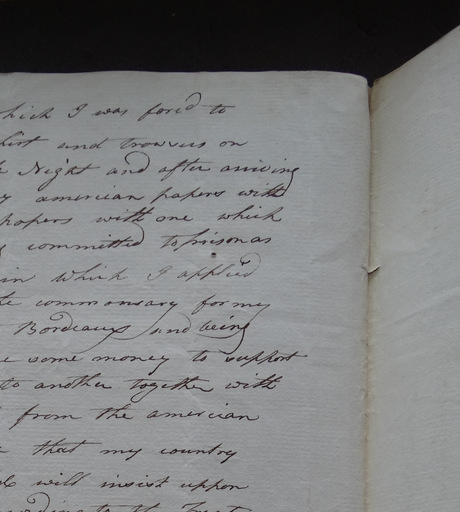 which I was forcd to
shirt and trowsers on
Night and after ariving
my american papers with
papers with one which
committed to prison as
in which I applied
commonsary for my
Bordeaux and being
some money to support
to another together with
from the american
that my country
will insist uppon
according to the Treaty